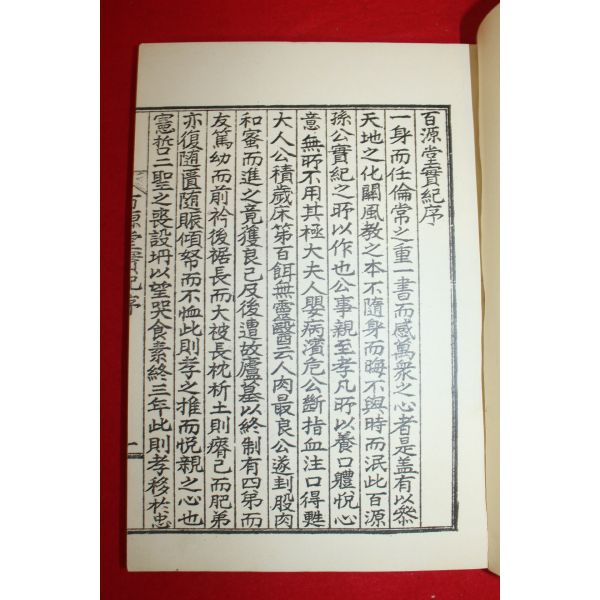 百源堂實紀序
一身而任倫常之重一書而感萬衆之心者是盖有以叅
天地之化關風教之本不隨身而晦不與時而泯此百源
孫公實紀之所以作也公事親至孝凡所以養口軆悅心
意無所不用其極大夫人嬰病濱危公斷指血注口得甦
大人公積歲床第百餌無靈醫云人肉最良公遂刲股肉
和蜜而進之竟獲良已及後遭故廬墓以終制有四弟而
友篤幼而前衿後裾長而大被長枕析土則瘠己而肥弟
亦復隨匱隨賑傾帑而不恤此則孝之推而悅親之心也
憲哲二聖之喪設坍以望哭食素終三年此則孝移於忠
百源堂實紀序
一